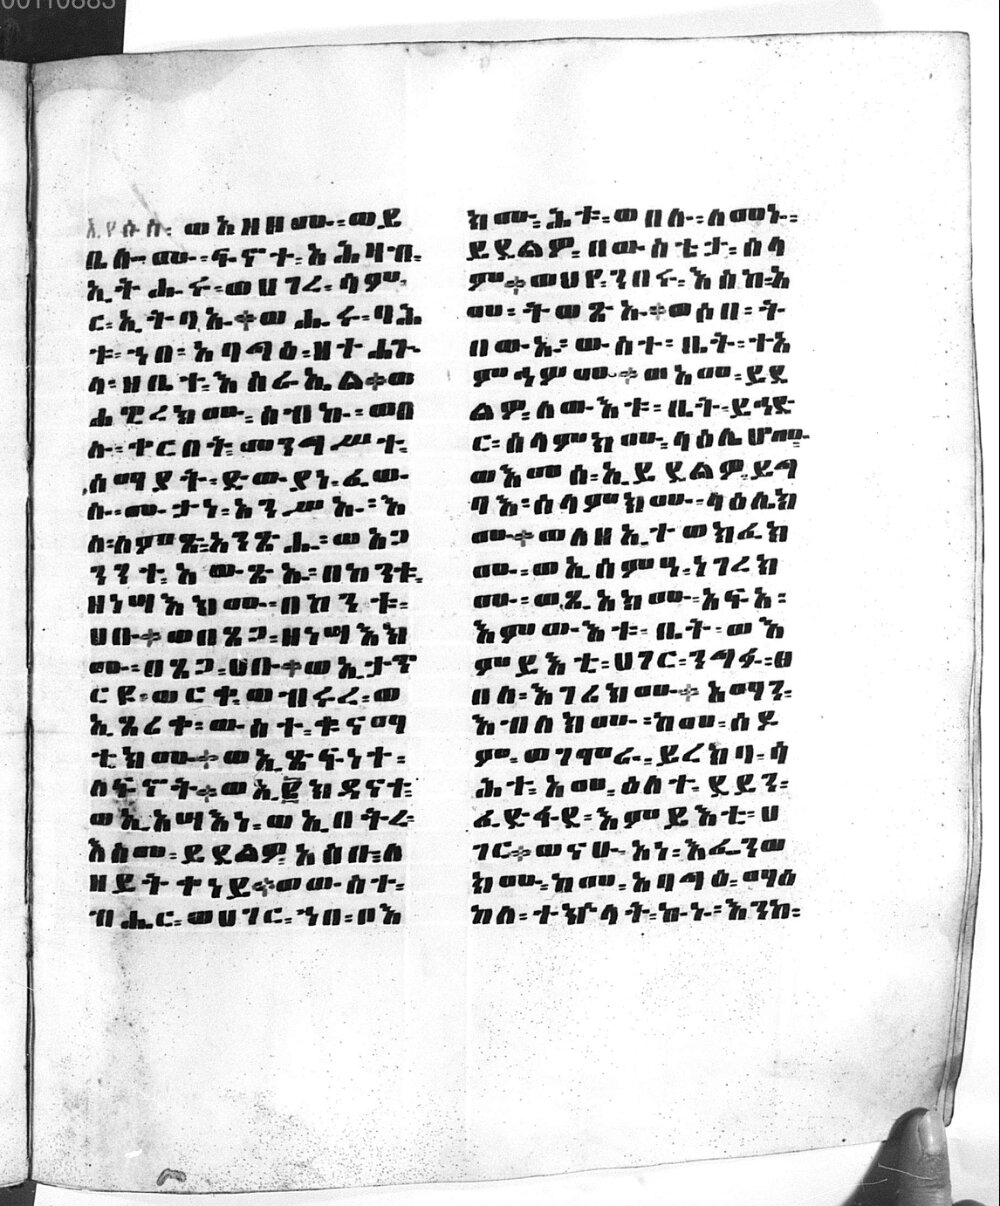 00110883
ኢየሱስ፡ ወአዘዘሙ፡ወይ
ቤሎሙ፡ፍኖተ፡አሕዛብ፡
ኢትሑሩ፡ወሀገረ፡ሳም
ር፡ኢትባኡ።ወሑሩ፡ባሕ
ቱ፡ኀበ፡አባግዕ፡ዘተሐጕ
ላ፡ዘቤተ፡እስራኤል።ወ
ሐዊረክሙ፡ስብኩ፡ወበ
ሉ፡ቀርበት፡መንግሥተ፡
ሰማያት፡ድውያነ፡ፈው
ሱ፡ሙታነ፡አንሥኡ፡እ
ለ፡ለምጽ፡አንጽሑ፡ወአጋ
ንንተ፡አውጽኡ፡በከንቱ፡
ዘነሣእክሙ፡በከንቱ፡
ሀቡ።ወበጼጋ፡ዘነሣእክ
ሙ፡በጼጋ፡ሀቡ።ወኢታጥ
ርዩ፡ወርቀ፡ወብሩረ፡ወ
ኢጸሪቀ፡ውስተ፡ቅናማ
ቲክሙ።ወኢጽፍነተ፡
ለፍኖት።ወኢ፪ክዳናተ፡
ወኢአሣእነ፡ወኢበትረ፡
እስመ፡ይደልዎ፡አስቡ፡ለ
ዘይትቀነይ።ወውስተ፡
ብሔር፡ወሀገር፡ኀበ፡ቦእ
ክሙ፡ሕቱ፡ወበሉ፡ለመኑ፡
ይደልዎ፡በውስቴታ፡ሰላ
ም።ወህየ፡ንበሩ፡እስከ፡አ
መ፡ትወጽኡ።ወሶበ፡ት
በውኡ፡ውስተ፡ቤት፡ተአ
ምኅምሙ።ወእመ፡ይደ
ልዎ፡ለውእቱ፡ቤት፡ይኀድ
ር፡ሰላምክሙ፡ላዕሌሆሙ፡
ወእመሰ፡ኢይደልዎ፡ይግ
ባእ፡ሰላምክሙ፡ላዕሌክ
ሙ።ወለዘኢተወክፈክ
ሙ፡ወኢሰምዓ፡ነገረክ
ሙ፡ወፂአክሙ፡አፍአ፡
እምውእቱ፡ቤት፡ወእ
ምይእቲ፡ሀገር፡ንግፉ፡ፀ
በለ፡እገሪክሙ።አማን፡
እብለክሙ፡ከመ፡ሰዶ
ም፡ወገሞራ፡ይረክባ፡ሳ
ሕተ፡አመ፡ዕለተ፡ደይን፡
ፈድፋደ፡እምይእቲ፡ሀ
ገር።ወናሁ፡አነ፡እፌንወ
ክሙ፡ከመ፡አባግዕ፡ማዕ
ከለ፡ተኵላት፡ኩኑ፡እንከ፡